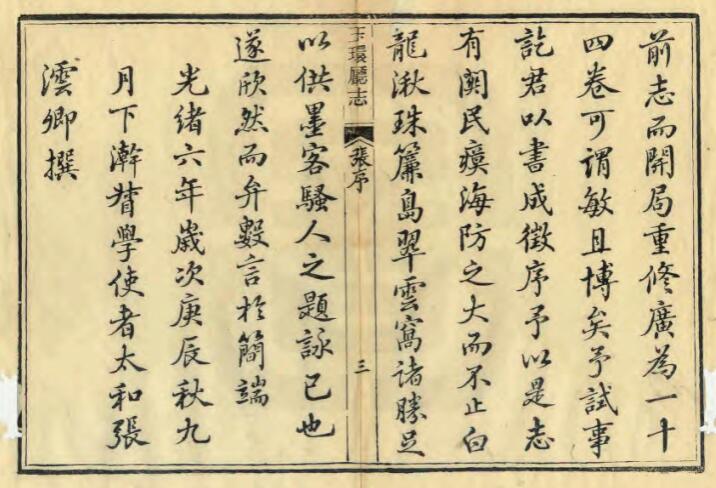 前志而開局重修廣為一十
四卷可謂敏且博矣予試事
訖君以書成徵序予以是志
有關民瘼海防之大而不止白
龍湫珠簾島翠雲窩諸勝足
玉環廳志
張序
三
以供墨客騷人之題詠已也
遂欣然而弁數言於簡端
光緒六年歲次庚辰秋九
月下澣督學使者太和張
澐卿撰